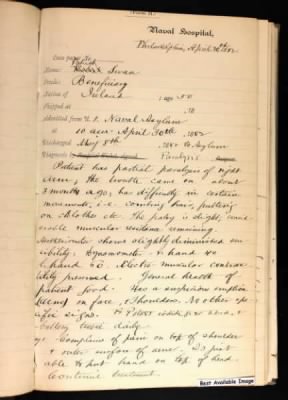 Naval Hospital,
Philadelphia, April 30th 1882
Case paper No.
Name: Patrick Swan
Beneficiary
Native of Ireland age 50
Shipped at 18
Admitted from U.S. Naval Asylum
10 a.m. April 30th, 1882
Discharged May 8th 1882 to Asylum
Diagnosis Paralysis
Patient has partial paralysis of right
arm, the trouble came on about
3 months ago, has difficulty in certain
movements, i.e. combing hair, putting
on clothes etc. The palsy is slight, consid-
erable muscular remaining.
shows slightly diminished sen-
sibility. Dynamometer R hand
L hand Electro muscular contrac-
tility preserved. General health of
patient good. Has a suspicious eruption
on face & shoulders. No other
signs.
battery used daily
Complains of pain on top of shoulder
& outer of arm. Is just
able to put hand on top of head.
Continue treatment.
Best Available Image